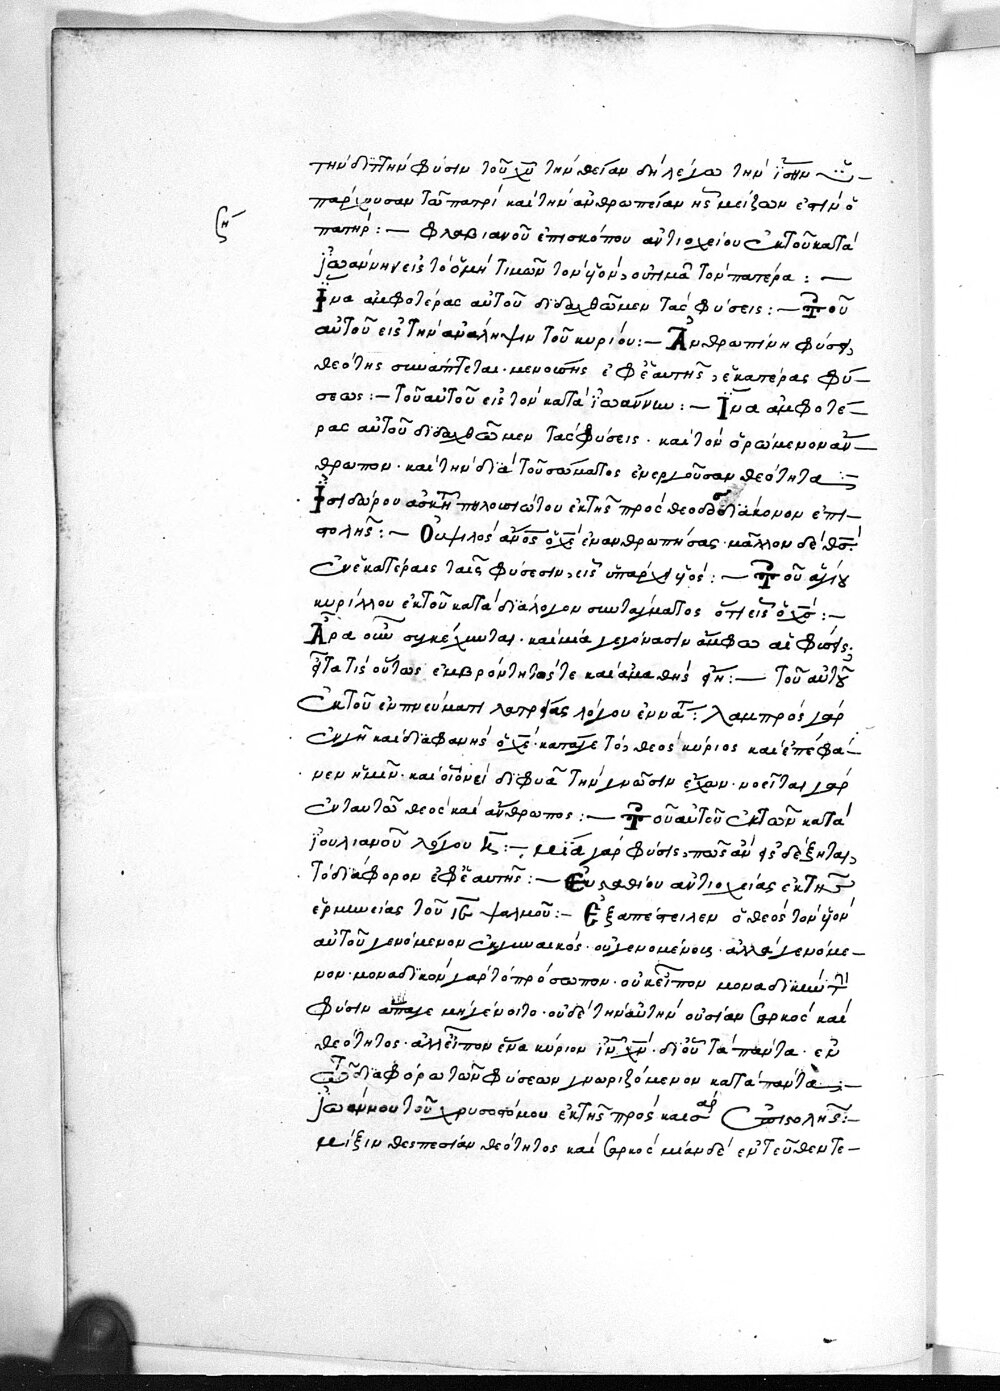 τὴν διττὴν φύσιν τοῦ χῦ τὴν θείαν δὴ λέγω τὴν ἴσην ὑ-
πάρχουσαν τῶ πατρί καὶ τὴν ἀνθρωπείαν ἧς μείζων ἐστὶν ὁ
πατήρ :- Φλαβιανοῦ ἐπισκόπου ἀντιοχείου ἐκ τοῦ κατὰ
ἰωάννην εἰς τὸ ὁ μὴ τιμῶν τὸν υἱὸν, οὐ τιμᾶ τὸν πατέρα :-
Ἵνα ἀμφοτέρας αὐτοῦ διδαχθῶμεν τὰς φύσεις :- Τοῦ
αὐτοῦ εἰς τὴν ἀνάληψιν τοῦ κυρίου :- Ἀνθρωπίνη φύσις
θεότης συνάπτεται· μενούσης ἐφ ἑαυτῆς, ἑκατέρας φύ-
σεως :- Τοῦ αὐτοῦ εἰς τὸν κατὰ ἰωάννην :- Ἵνα ἀμφοτέ-
ρας αὐτοῦ διδαχθῶμεν τὰς φύσεις· καὶ τὸν ὁρώμενον ἄν-
θρωπον· καὶ τὴν διὰ τοῦ σώματος ἐνεργοῦσαν θεότητα :-
Ἰσιδώρου ἀσκητ πηλουσιώτου ἐκ τῆς πρὸς θεοδόσ διάκονον ἐπι-
στολῆς :- Οὐ ψιλὸς ἄνος ὁ χς ἐνανθρωπήσας· μᾶλλον δὲ θς
ἐν ἑκατέραις ταῖς φύσεσιν, εἷς ὑπάρχει υἱός :- Τοῦ ἁγίου
κυρίλλου ἐκ τοῦ κατὰ διάλογον συντάγματος ὅτι εἷς ὁ χς :-
Ἆρα οὖν συγκέχυνται· καὶ μία γεγόνασιν ἄμφω αἱ φύσεις,
εἶτα τίς οὕτως ἐμβρόντητός τε καὶ ἀμαθὴς :- τοῦ αὐτοῦ
ἐκ τοῦ ἐν πνεύματι λατρείας λόγου ἐννάτ : Λαμπρὸς γὰρ
καὶ διαφανὴς ὁ χς· θεὸς κύριος καὶ ἐπέφα-
νεν ἡμῖν· καὶ οἱονεὶ διφυᾶ τὴν γνῶσιν ἔχων· νοεῖται γὰρ
ἐν ταυτῶ θεὸς καὶ ἄνθρωπος :- Τοῦ αὐτοῦ ἐκ τῶν κατὰ
ἰουλιανοῦ λόγου :- μία γὰρ φύσις, πῶς ἂν ἐπιδέξηται,
τὸ διάφορον ἐφ ἑαυτῆς :- Εὐσταθίου ἀντιοχείας ἐκ τῆς
ἑρμηνείας τοῦ ψαλμοῦ :- Ἐξαπέστειλεν ὁ θεὸς τὸν υἱὸν
αὐτοῦ γενόμενον ἐκ γυναικός· οὐ γενομένοις· ἀλλὰ γενόμε-
νον· μοναδικὸν γὰρ τὸ πρόσωπον· οὐκ εἶπον μοναδικὴν τὴν
φύσιν ἄπαγε μὴ γένοιτο· οὐδὲ τὴν αὐτὴν οὐσίαν σαρκὸς καὶ
θεότητος· ἀλλ εἶπον ἕνα κύριον ιν χν· δι οὗ τὰ πάντα· ἐν
τῶ διαφόρω τῶν φύσεων γνωριζόμενον κατὰ πάντα :-
Ἰωάννου τοῦ χρυσοστόμου ἐκ τῆς πρὸς καισάρ ἐπιστολῆς :-
μίξιν θεσπεσίαν θεότητος καὶ σαρκὸς μίαν δὲ ἐντεῦθεν τε-